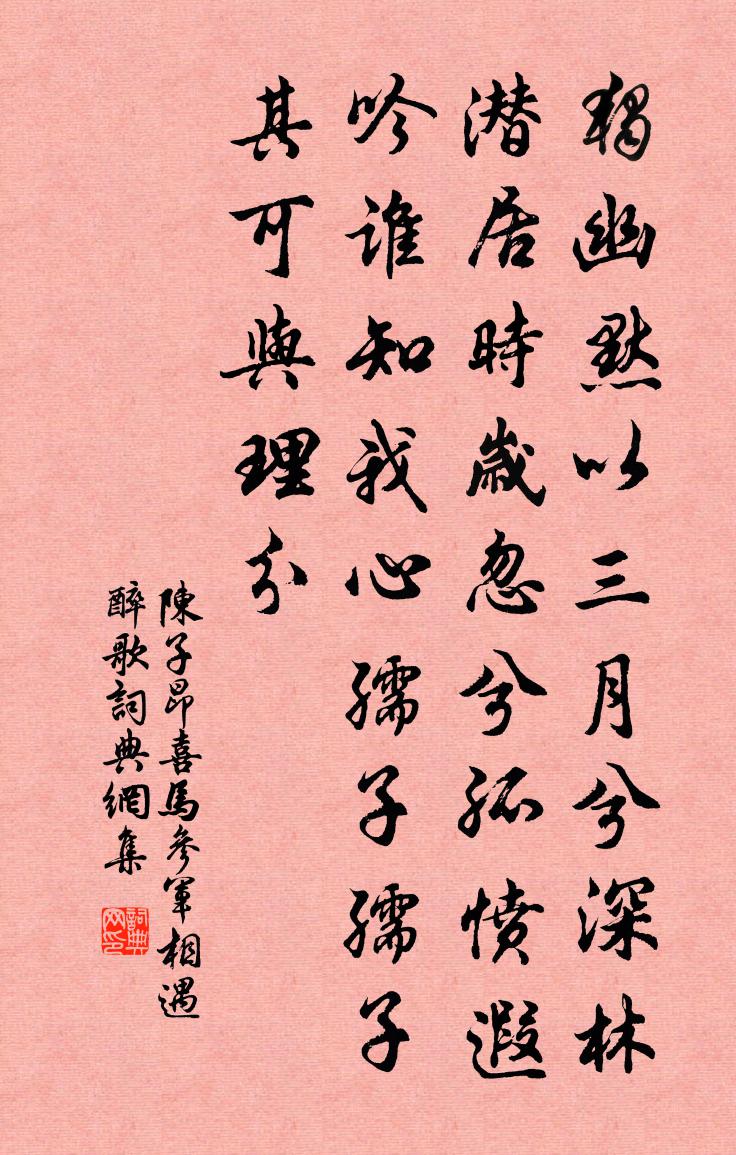 獨幽默以三月兮深林
潛居時歲忽兮孤憤遐
吟誰知我心孺子孺子
其可與理分
陳子昂喜馬參軍相遇
醉歌詞典網集
詞典網印